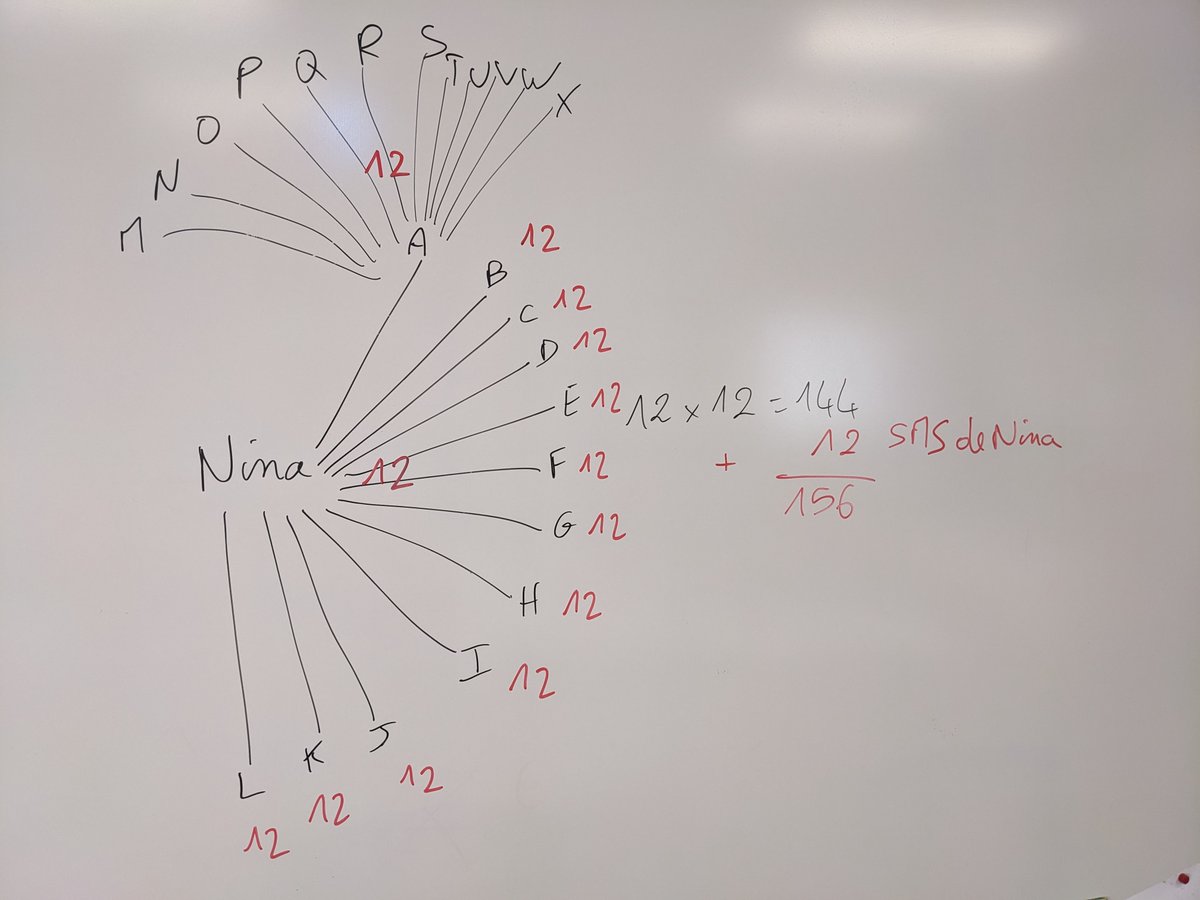 P Q R S T U V W X
O
N
M
12
A
B 12
C 12
D 12
E 12
12 x 12 = 144
Nina 12
F 12
+ 12 SMS de Nina
156
G 12
H 12
I 12
J 12
K 12
L 12